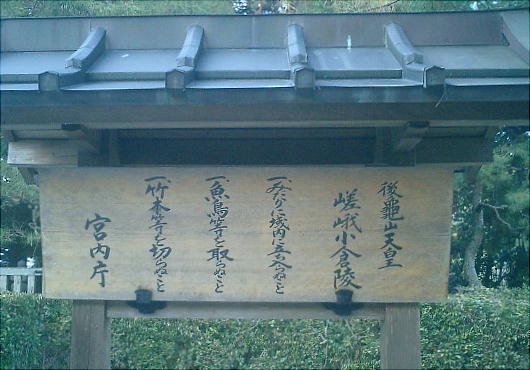 後龜山天皇
嵯峨小倉陵
一、みだりに域内に立入らぬこと
一、魚鳥等を取らぬこと
一、竹木等を切らぬこと
宮内庁